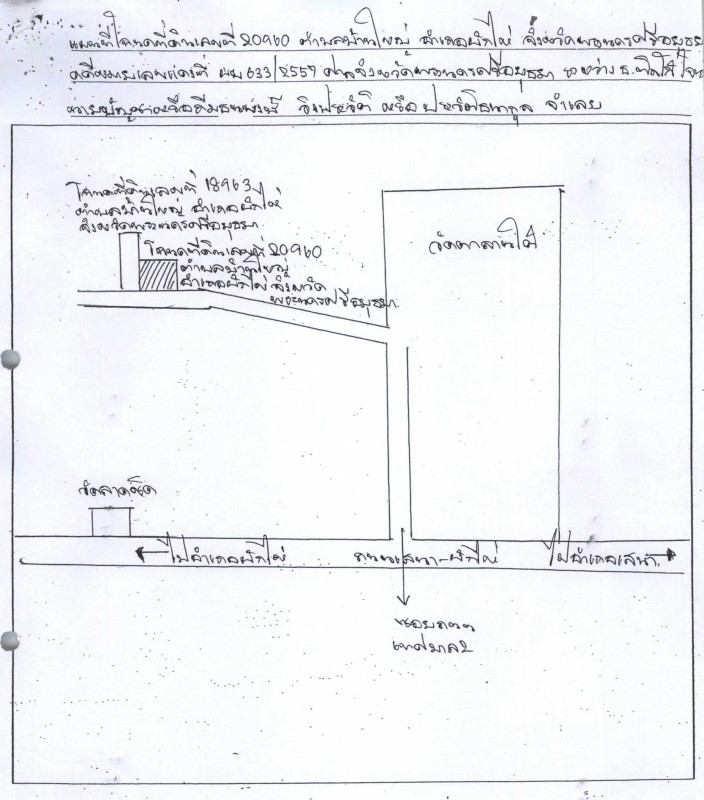 แผนที่โฉนดที่ดินเลขที่ 20960 ตำบลบ้านใหญ่ อำเภอผักไห่ จังหวัดพระนครศรีอยุธยา
คดีหมายเลขแดงที่ ผบ 633/2557 ศาลจังหวัดพระนครศรีอยุธยา ระหว่าง ธ.
จำเลย
โฉนดที่ดินเลขที่ 18963
ตำบลบ้านใหญ่ อำเภอผักไห่
จังหวัดพระนครศรีอยุธยา
โฉนดที่ดินเลขที่ 20960
ตำบลบ้านใหญ่
อำเภอผักไห่ จังหวัด
พระนครศรีอยุธยา
วัดตาลานใต้
วัดลาดชิด
ไปอำเภอผักไห่
ถนนเสนา-ผักไห่
ไปอำเภอเสนา
ซอย
เทศบาล 2